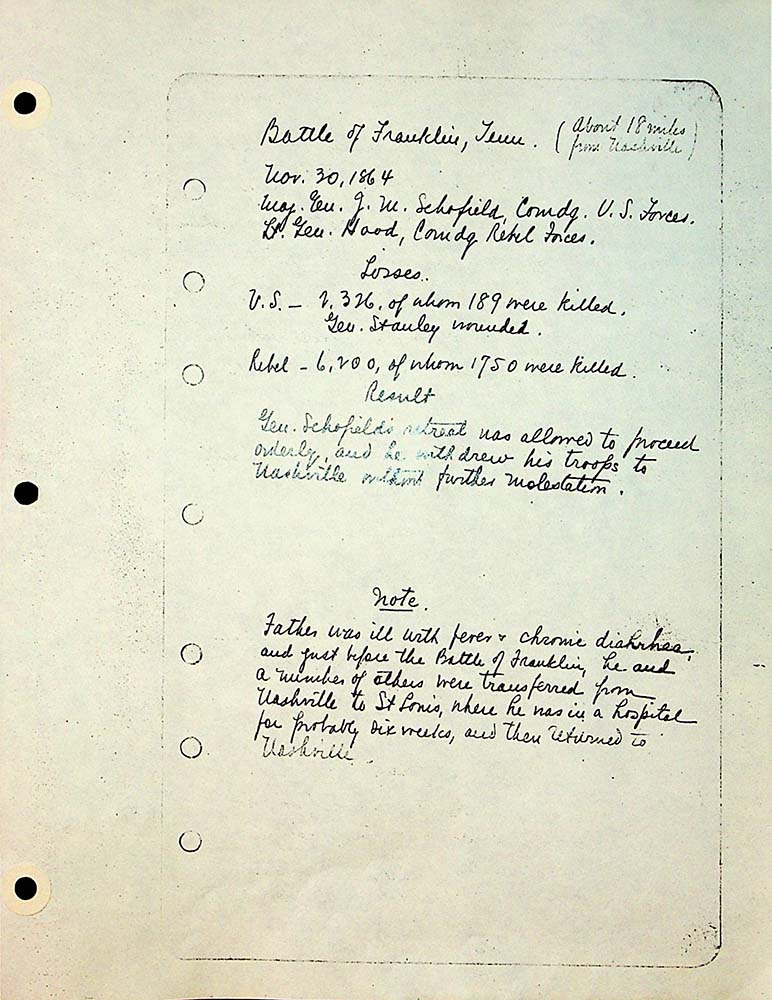 Battle of Franklin, Tenn. (About 18 miles
from Nashville)
Nov. 30, 1864
Maj. Gen. J. M. Schofield, Comdg. U.S. Forces.
Lt. Gen. Hood, Comdg Rebel Forces.
Losses.
U.S. — 2,326, of whom 189 were killed.
Gen. Stanley wounded.
Rebel — 6,200, of whom 1750 were killed.
Result
Gen. Schofield's retreat was allowed to proceed
orderly, and he withdrew his troops to
Nashville without further molestation.
Note.
Father was ill with fever & chronic diahrhea,
and just before the Battle of Franklin, he and
a number of others were transferred from
Nashville to St Louis, where he was in a hospital
for probably six weeks, and then returned to
Nashville.